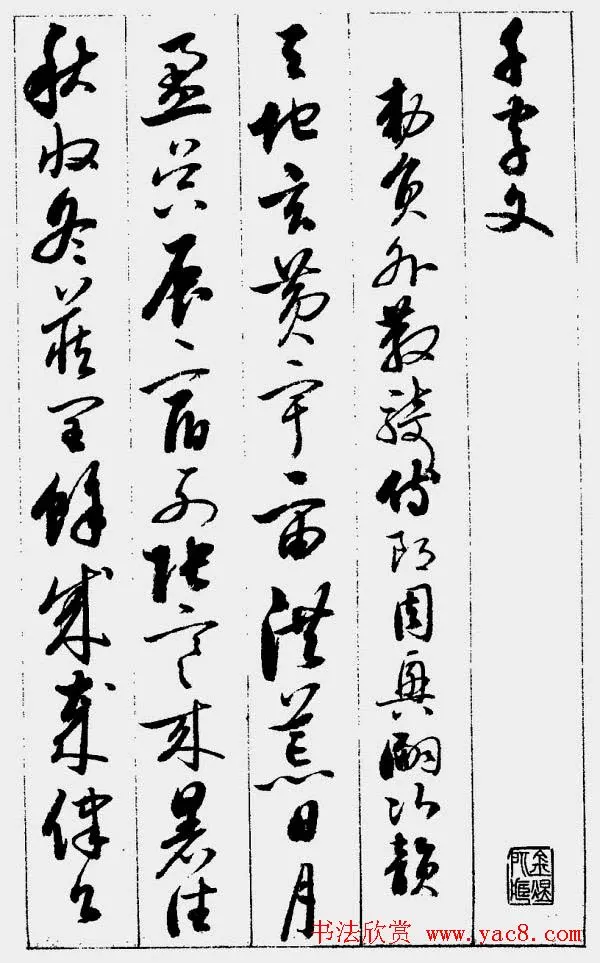 千字文
敕員外散騎侍郎周興嗣次韻
天地玄黃宇宙洪荒日月
盈昃辰宿列張寒來暑往
秋收冬藏閏餘成歲律
书法欣赏 www.yac8.com